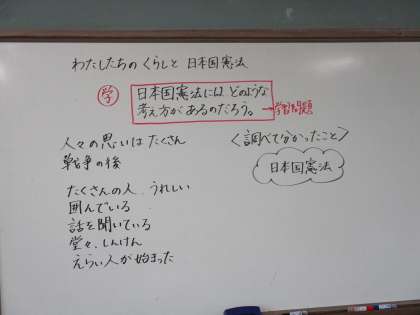 わたしたちの くらしと 日本国憲法
学
日本国憲法には、どのような
考え方が あるのだろう。
→学習問題
人々の思いは たくさん
戦争の後
たくさんの人 うれしい
囲んでいる
話を聞いている
堂々、しんけん
えらい人が始まった
<調べて分かったこと>
日本国憲法